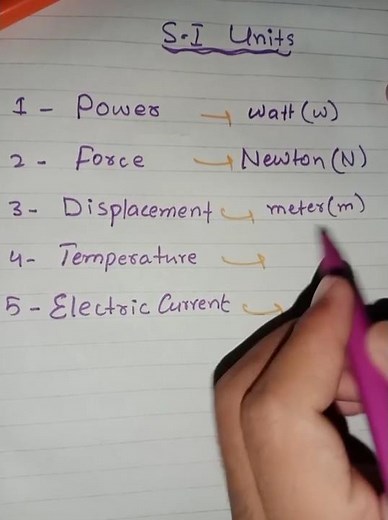 S.I Units
1 - Power → Watt (w)
2 - Force → Newton (N)
3 - Displacement → meter (m)
4 - Temperature →
5 - Electric Current →